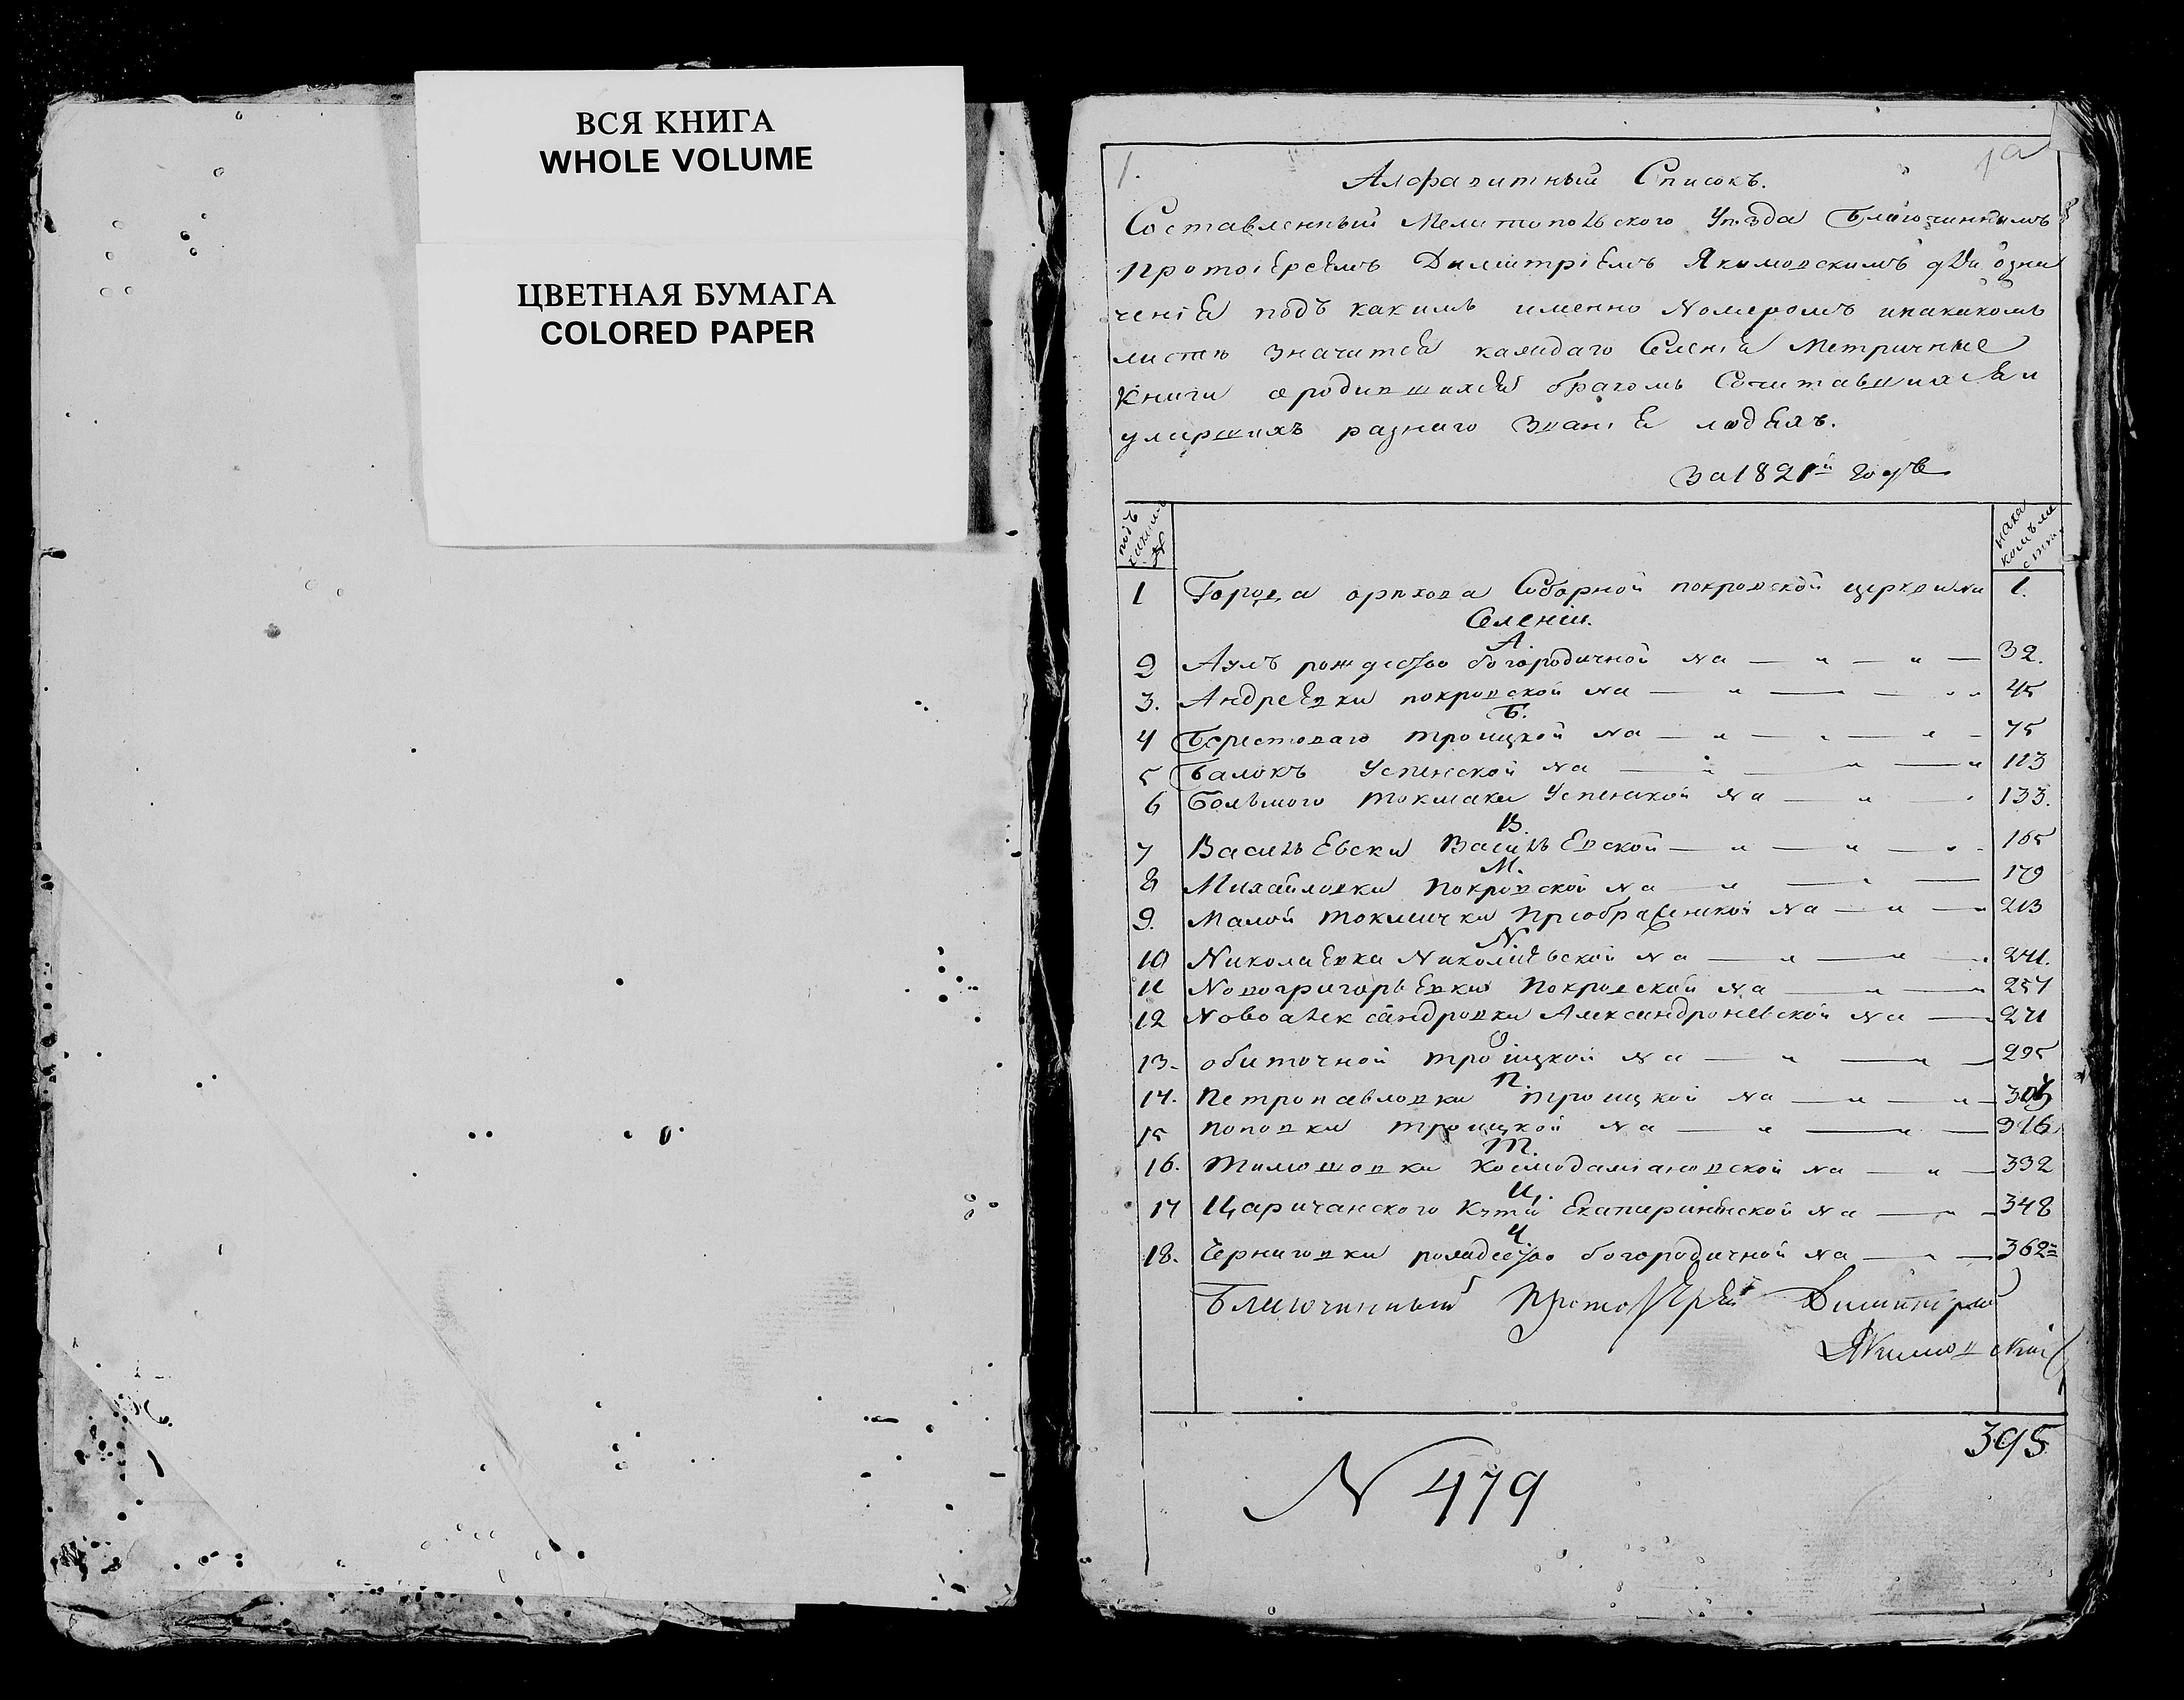 ВСЯ КНИГА
WHOLE VOLUME
ЦВЕТНАЯ БУМАГА
COLORED PAPER
1.
Алфавитный Списокъ.
Составленный Мелитопольского Уѣзда Благочиннымъ
Протоіереемъ Димитріемъ Якимовскимъ для озна
ченія подъ какимъ именно Номеромъ и на какомъ
листѣ значится каждаго Селенія Метричные
Книги о родившихся бракомъ Сочитавшихся и
умершихъ разнаго Званія людяхъ.
За 1821й годъ
подъ какимъ №
на какомъ листѣ
1 Города орѣхова Соборной покровской церкви на 1.
Селеніи.
А.
2 Аулъ рождество богородичной на — „ — „ — 32.
3. Андреевки покровской на — „ — — „ 45
Б.
4 Берестоваго троицкой на — „ — „ — „ 75
5 Балокъ Успенской на — „ — „ — „ 113
6 Большого токмака Успенской на — „ — „ 133.
В.
7 Васильевки Васильевской — „ — „ — „ 165
М.
8 Михайловки Покровской на — „ — „ — 179
9. Малой токмачки Преображенской на — „ — „ 213
N.
10 Nиколаевка Nиколаевской на — „ — „ — „ 241.
11 Nовогригорьевки Покровской на — „ — „ 257
12 Nовоалександровки Александроневской на — 271
О
13. обиточной троицкой на — „ — „ — 295
П.
14. Петропавловки троицкой на — „ — „
15 поповки троицкой на — „ — „ — 316
Т.
16. Тимошовки Космодаміановской на — „ — 332
Ц.
17 Царичанского Кута Екатерининской на — „ — 348
Ч.
18. Черниговки рождество богородичной на — „ — 362
Благочинный Протоіерей Димитрій
Якимовскій
395
N 479